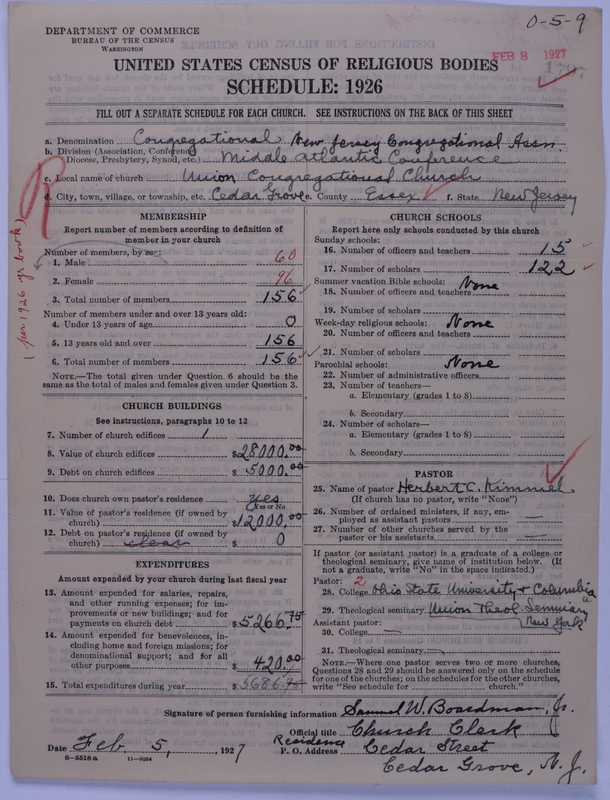 DEPARTMENT OF COMMERCE
BUREAU OF THE CENSUS
WASHINGTON
0-5-9
FEB 8 1927
UNITED STATES CENSUS OF RELIGIOUS BODIES
SCHEDULE: 1926
FILL OUT A SEPARATE SCHEDULE FOR EACH CHURCH. SEE INSTRUCTIONS ON THE BACK OF THIS SHEET
a. Denomination Congregational New Jersey Congregational Assn
b. Division (Association, Conference, Diocese, Presbytery, Synod, etc.) Middle Atlantic Conference
c. Local name of church Union Congregational Church
d. City, town, village, or township, etc. Cedar Grove e. County Essex f. State New Jersey
(per 1926 yr book)
MEMBERSHIP
Report number of members according to definition of
member in your church
Number of members, by sex:
1. Male 60
2. Female 96
3. Total number of members 156
Number of members under and over 13 years old:
4. Under 13 years of age 0
5. 13 years old and over 156
6. Total number of members 156
NOTE.—The total given under Question 6 should be the
same as the total of males and females given under Question 3.
CHURCH BUILDINGS
See instructions, paragraphs 10 to 12
7. Number of church edifices 1
8. Value of church edifices $28000.00
9. Debt on church edifices $5000.00
10. Does church own pastor's residence yes
Yes or No
11. Value of pastor's residence (if owned by
church) $12000.00
12. Debt on pastor's residence (if owned by
church) clear $ 0
EXPENDITURES
Amount expended by your church during last fiscal year
13. Amount expended for salaries, repairs,
and other running expenses; for im-
provements or new buildings; and for
payments on church debt $5266.75
14. Amount expended for benevolences, in-
cluding home and foreign missions; for
denominational support; and for all
other purposes $420.00
15. Total expenditures during year $5686.75
CHURCH SCHOOLS
Report here only schools conducted by this church
Sunday schools:
16. Number of officers and teachers 15
17. Number of scholars 122
Summer vacation Bible schools: None
18. Number of officers and teachers
19. Number of scholars
Week-day religious schools: None
20. Number of officers and teachers
21. Number of scholars
Parochial schools: None
22. Number of administrative officers
23. Number of teachers—
a. Elementary (grades 1 to 8)
b. Secondary
24. Number of scholars—
a. Elementary (grades 1 to 8)
b. Secondary
PASTOR
25. Name of pastor Herbert C. Kimmel
(If church has no pastor, write "None")
26. Number of ordained ministers, if any, em-
ployed as assistant pastors —
27. Number of other churches served by the
pastor or his assistants —
If pastor (or assistant pastor) is a graduate of a college or
theological seminary, give name of institution below. (If
not a graduate, write "No" in the space indicated.)
Pastor: 2
28. College Ohio State University & Columbia U
29. Theological seminary Union Theol. Seminary
Assistant pastor: New York
30. College —
31. Theological seminary —
NOTE.—Where one pastor serves two or more churches,
Questions 28 and 29 should be answered only on the schedule
for one of the churches; on the schedules for the other churches,
write "See schedule for church."
Signature of person furnishing information Samuel W. Boardman, Jr.
Official title Church Clerk
Date Feb. 5, 1927 Residence P. O. Address Cedar Street
8-5518a 11-9054 Cedar Grove, N. J.